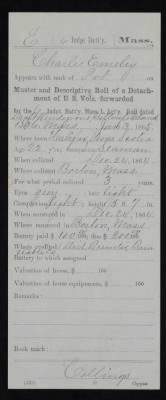 E 4 Indpt. Batt'y. Mass.
Charles Emsley
Appears with rank of Pvt. on
Muster and Descriptive Roll of a Detach-
ment of U. S. Vols. forwarded
for the 4 Indpt. Batty. Mass. L. Arty. Roll dated
1865.
Where born Nova Scotia
Age 22 y'rs; occupation Seaman
When enlisted Dec. 24, 1864
Where enlisted Boston, Mass.
For what period enlisted 3 years.
Eyes gray; hair light
Complexion light; height 5 ft. 7 in.
When mustered in Dec. 24, 1864
Where mustered in Boston, Mass.
Bounty paid $ 100; due $ 200
Where credited
Battery to which assigned
Valuation of horse, $ 100
Valuation of horse equipments, $ 100
Remarks:
Book mark:
Collings
Copyist.